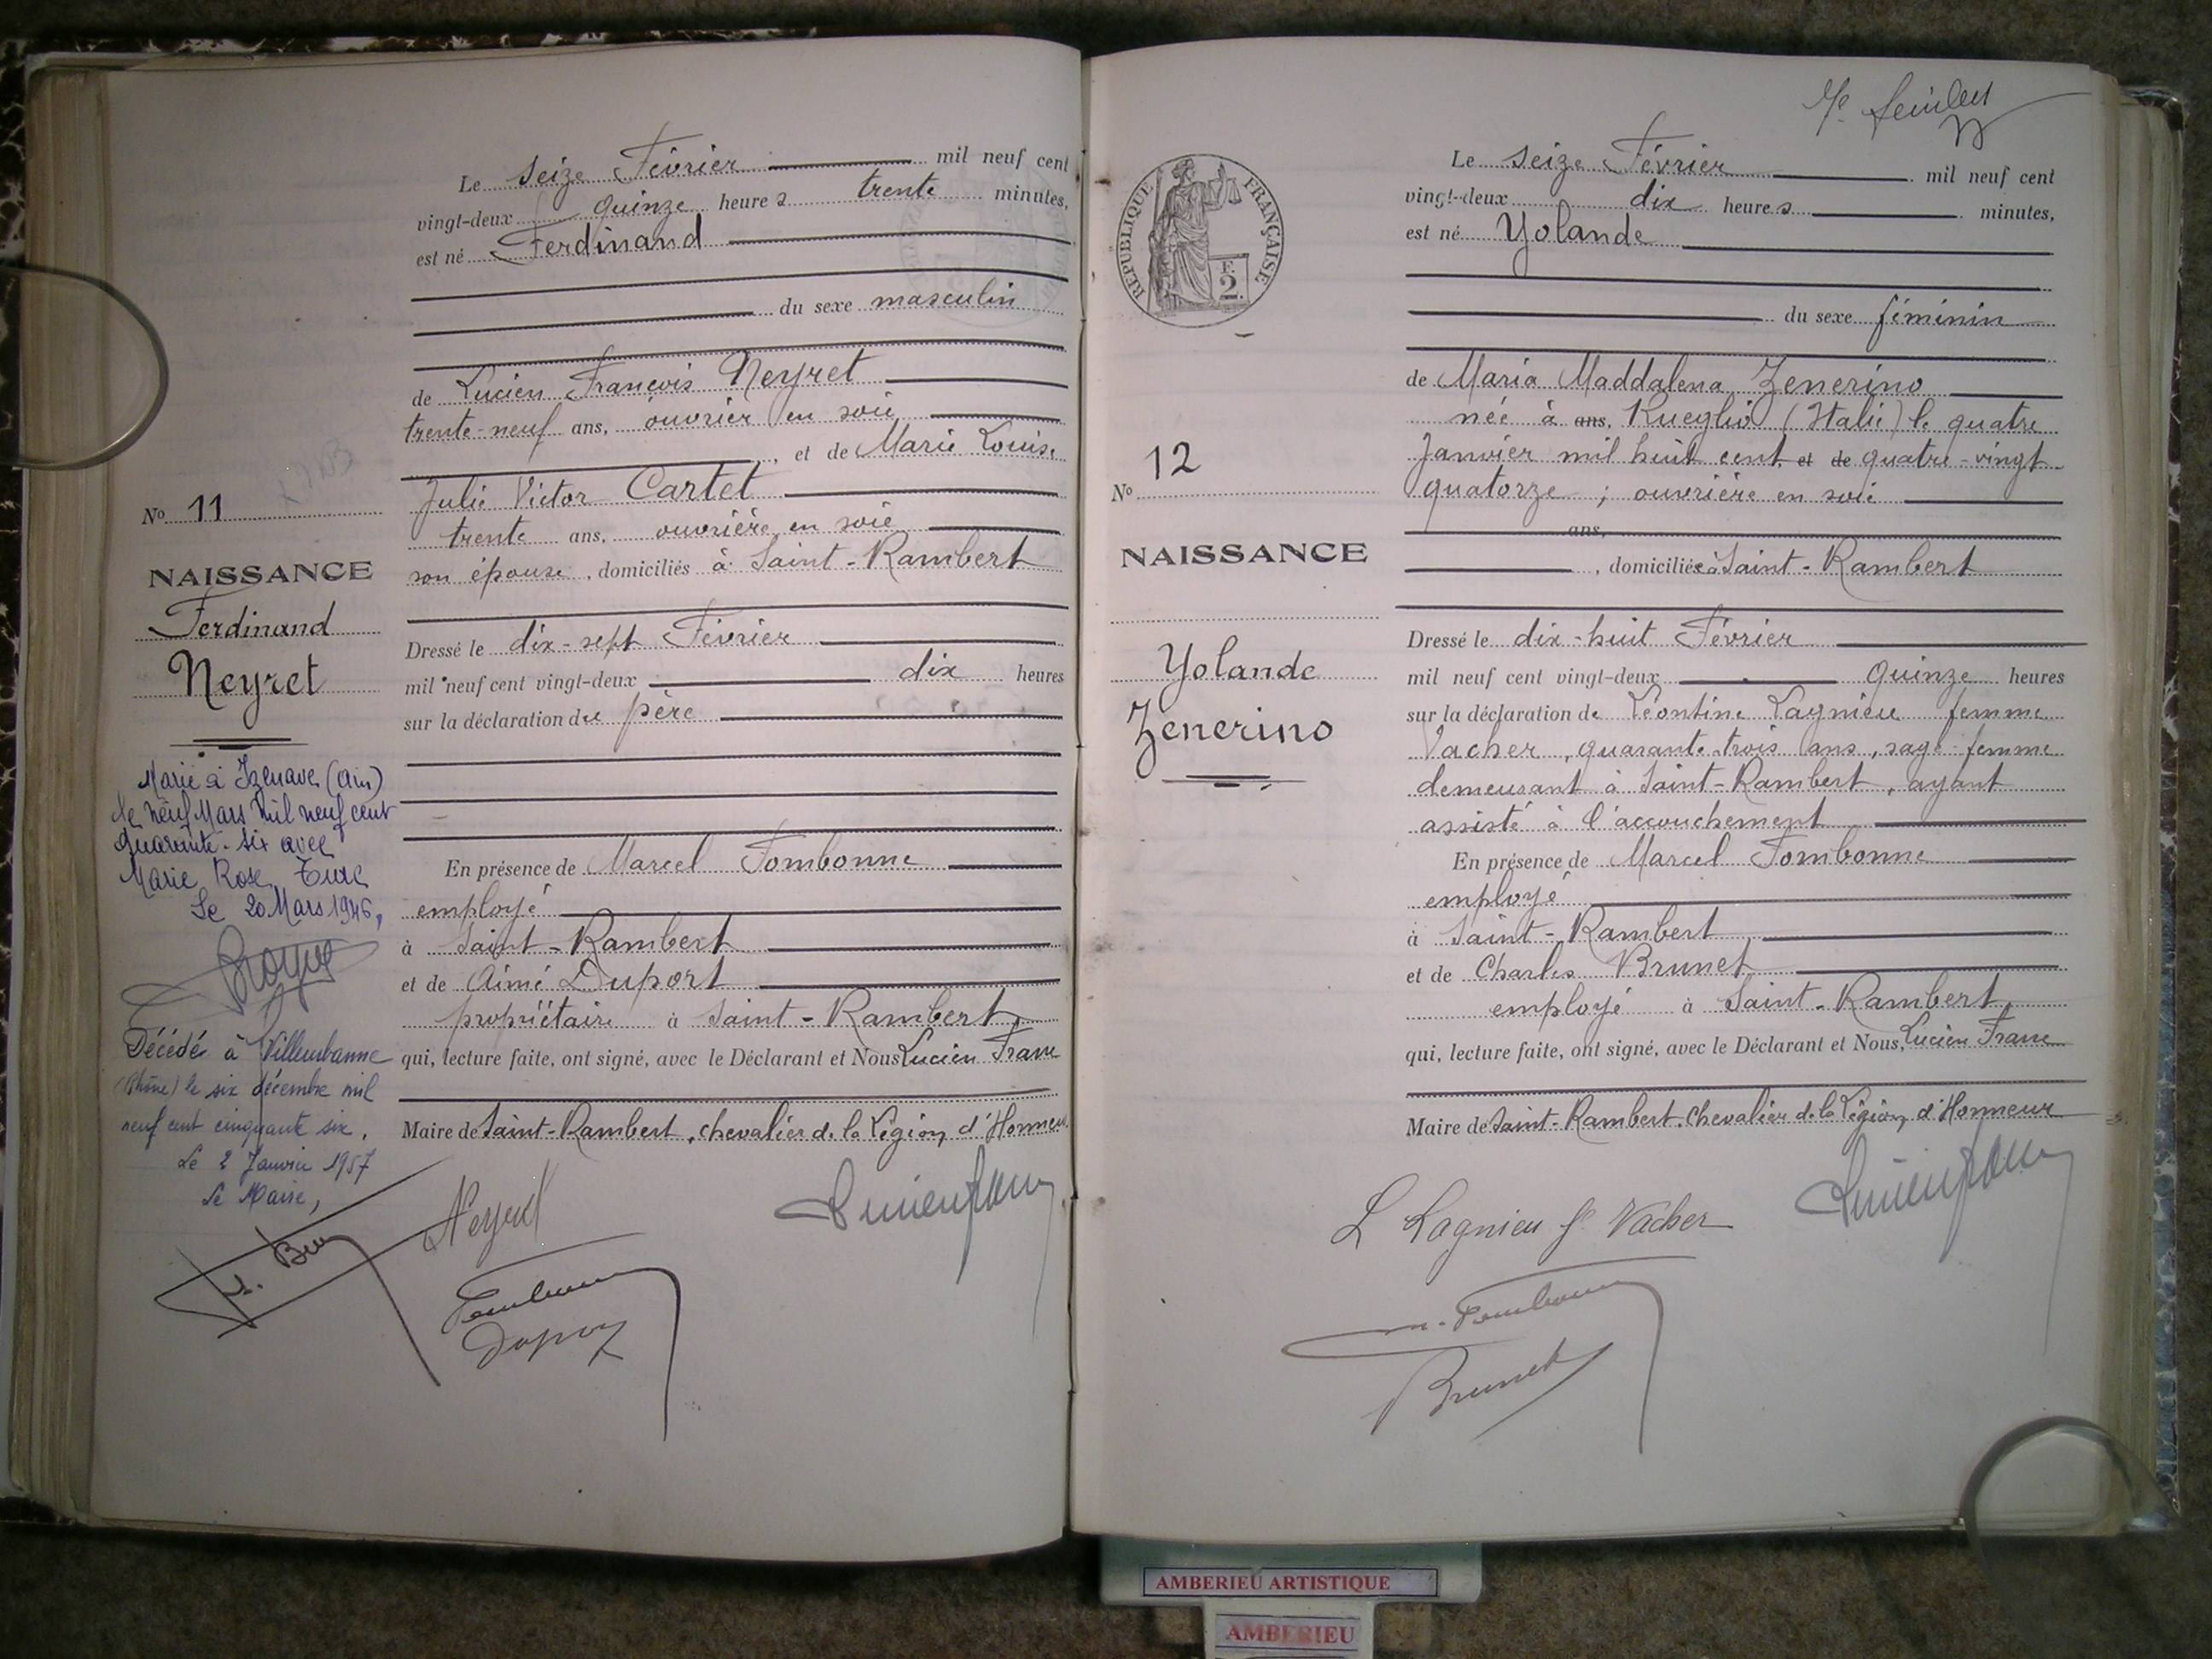 Le seize Février mil neuf cent
vingt-deux quinze heures trente minutes,
est né Ferdinand
du sexe masculin
de Lucien François Neyret
trente-neuf ans, ouvrier en soie
, et de Marie Louise
Julie Victor Cartet
trente ans, ouvrière en soie
son épouse, domiciliés à Saint-Rambert
Dressé le dix-sept Février
mil neuf cent vingt-deux dix heures
sur la déclaration du père
En présence de Marcel Fombonne
employé
à Saint-Rambert
et de Aimé Duport
propriétaire à Saint-Rambert,
qui, lecture faite, ont signé, avec le Déclarant et Nous Lucien Franc
Maire de Saint-Rambert, chevalier de la Légion d'Honneur
No 11
NAISSANCE
Ferdinand
Neyret
Marié à Izenave (Ain)
le neuf Mars mil neuf cent
quarante-six avec
Marie Rose
Le 20 Mars 1946,
Décédé à Villeurbanne
(Rhône) le six décembre mil
neuf cent cinquante six.
Le 2 Janvier 1957
Le Maire,
Neyret
RÉPUBLIQUE FRANÇAISE
F.
2.
Le seize Février mil neuf cent
vingt-deux dix heures minutes,
est né Yolande
du sexe féminin
de Maria Maddalena Zenerino
née à ans, Rueglio (Italie) le quatre
Janvier mil huit cent et de quatre-vingt-
quatorze ; ouvrière en soie
ans,
, domiciliée à Saint-Rambert
Dressé le dix-huit Février
mil neuf cent vingt-deux quinze heures
sur la déclaration de Léontine Lagnieu femme
Vacher, quarante-trois ans, sage-femme
demeurant à Saint-Rambert, ayant
assisté à l'accouchement
En présence de Marcel Fombonne
employé
à Saint-Rambert
et de Charles Brunet
employé à Saint-Rambert,
qui, lecture faite, ont signé, avec le Déclarant et Nous, Lucien Franc
Maire de Saint-Rambert, Chevalier de la Légion d'Honneur
No 12
NAISSANCE
Yolande
Zenerino
L Lagnieu fe Vacher
Brunet
AMBERIEU ARTISTIQUE
AMBERIEU